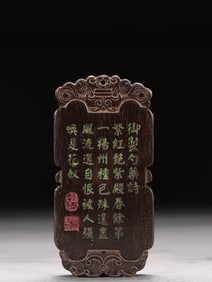 御製勺藥詩
繁紅艶紫殿春餘第
一揚州種色殊還盡
風流還自恨被人強
喚是花奴